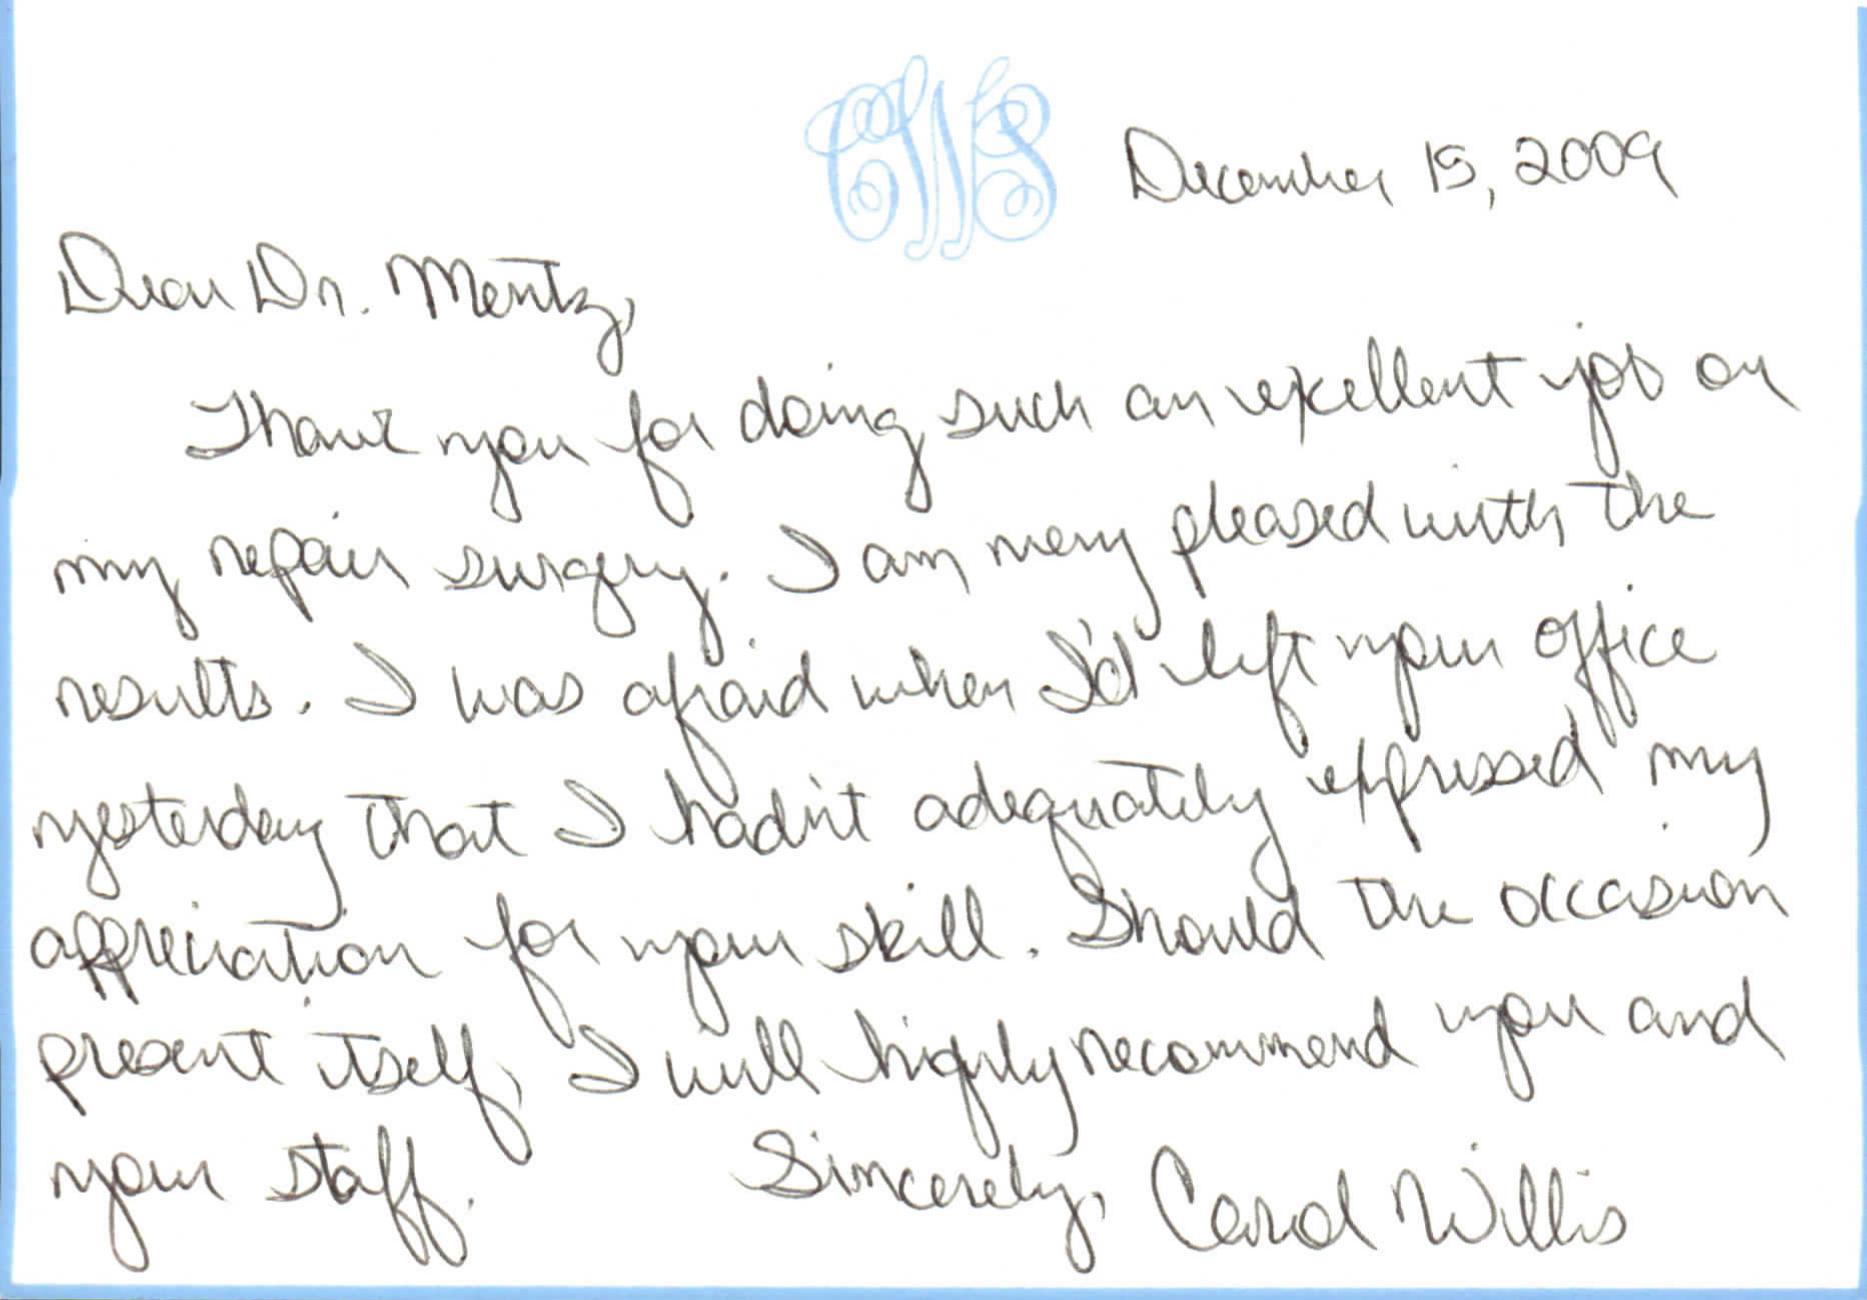 CWS
December 15, 2009
Dear Dr. Mentz,
Thank you for doing such an excellent job on
my repair surgery. I am very pleased with the
results. I was afraid when I'd left your office
yesterday that I hadn't adequately expressed my
appreciation for your skill. Should the occasion
present itself, I will highly recommend you and
your staff. Sincerely, Carol Willis